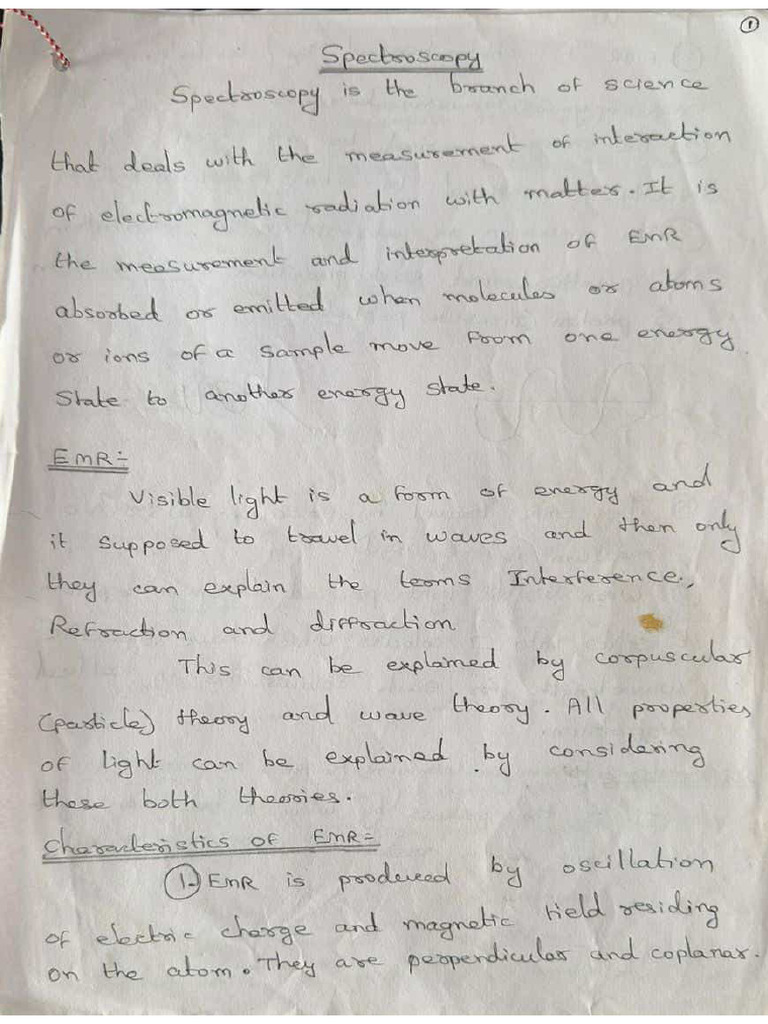 1
Spectroscopy
Spectroscopy is the branch of science
that deals with the measurement of interaction
of electromagnetic radiation with matter. It is
the measurement and interpretation of EMR
absorbed or emitted when molecules or atoms
or ions of a sample move from one energy
state to another energy state.
EMR:-
Visible light is a form of energy and
it supposed to travel in waves and then only
they can explain the terms Interference,
Refraction and diffraction
This can be explained by corpuscular
(particle) theory and wave theory. All properties
of light can be explained by considering
these both theories.
Characteristics of EMR:-
1. EMR is produced by oscillation
of electric charge and magnetic field residing
on the atom. They are perpendicular and coplanar.